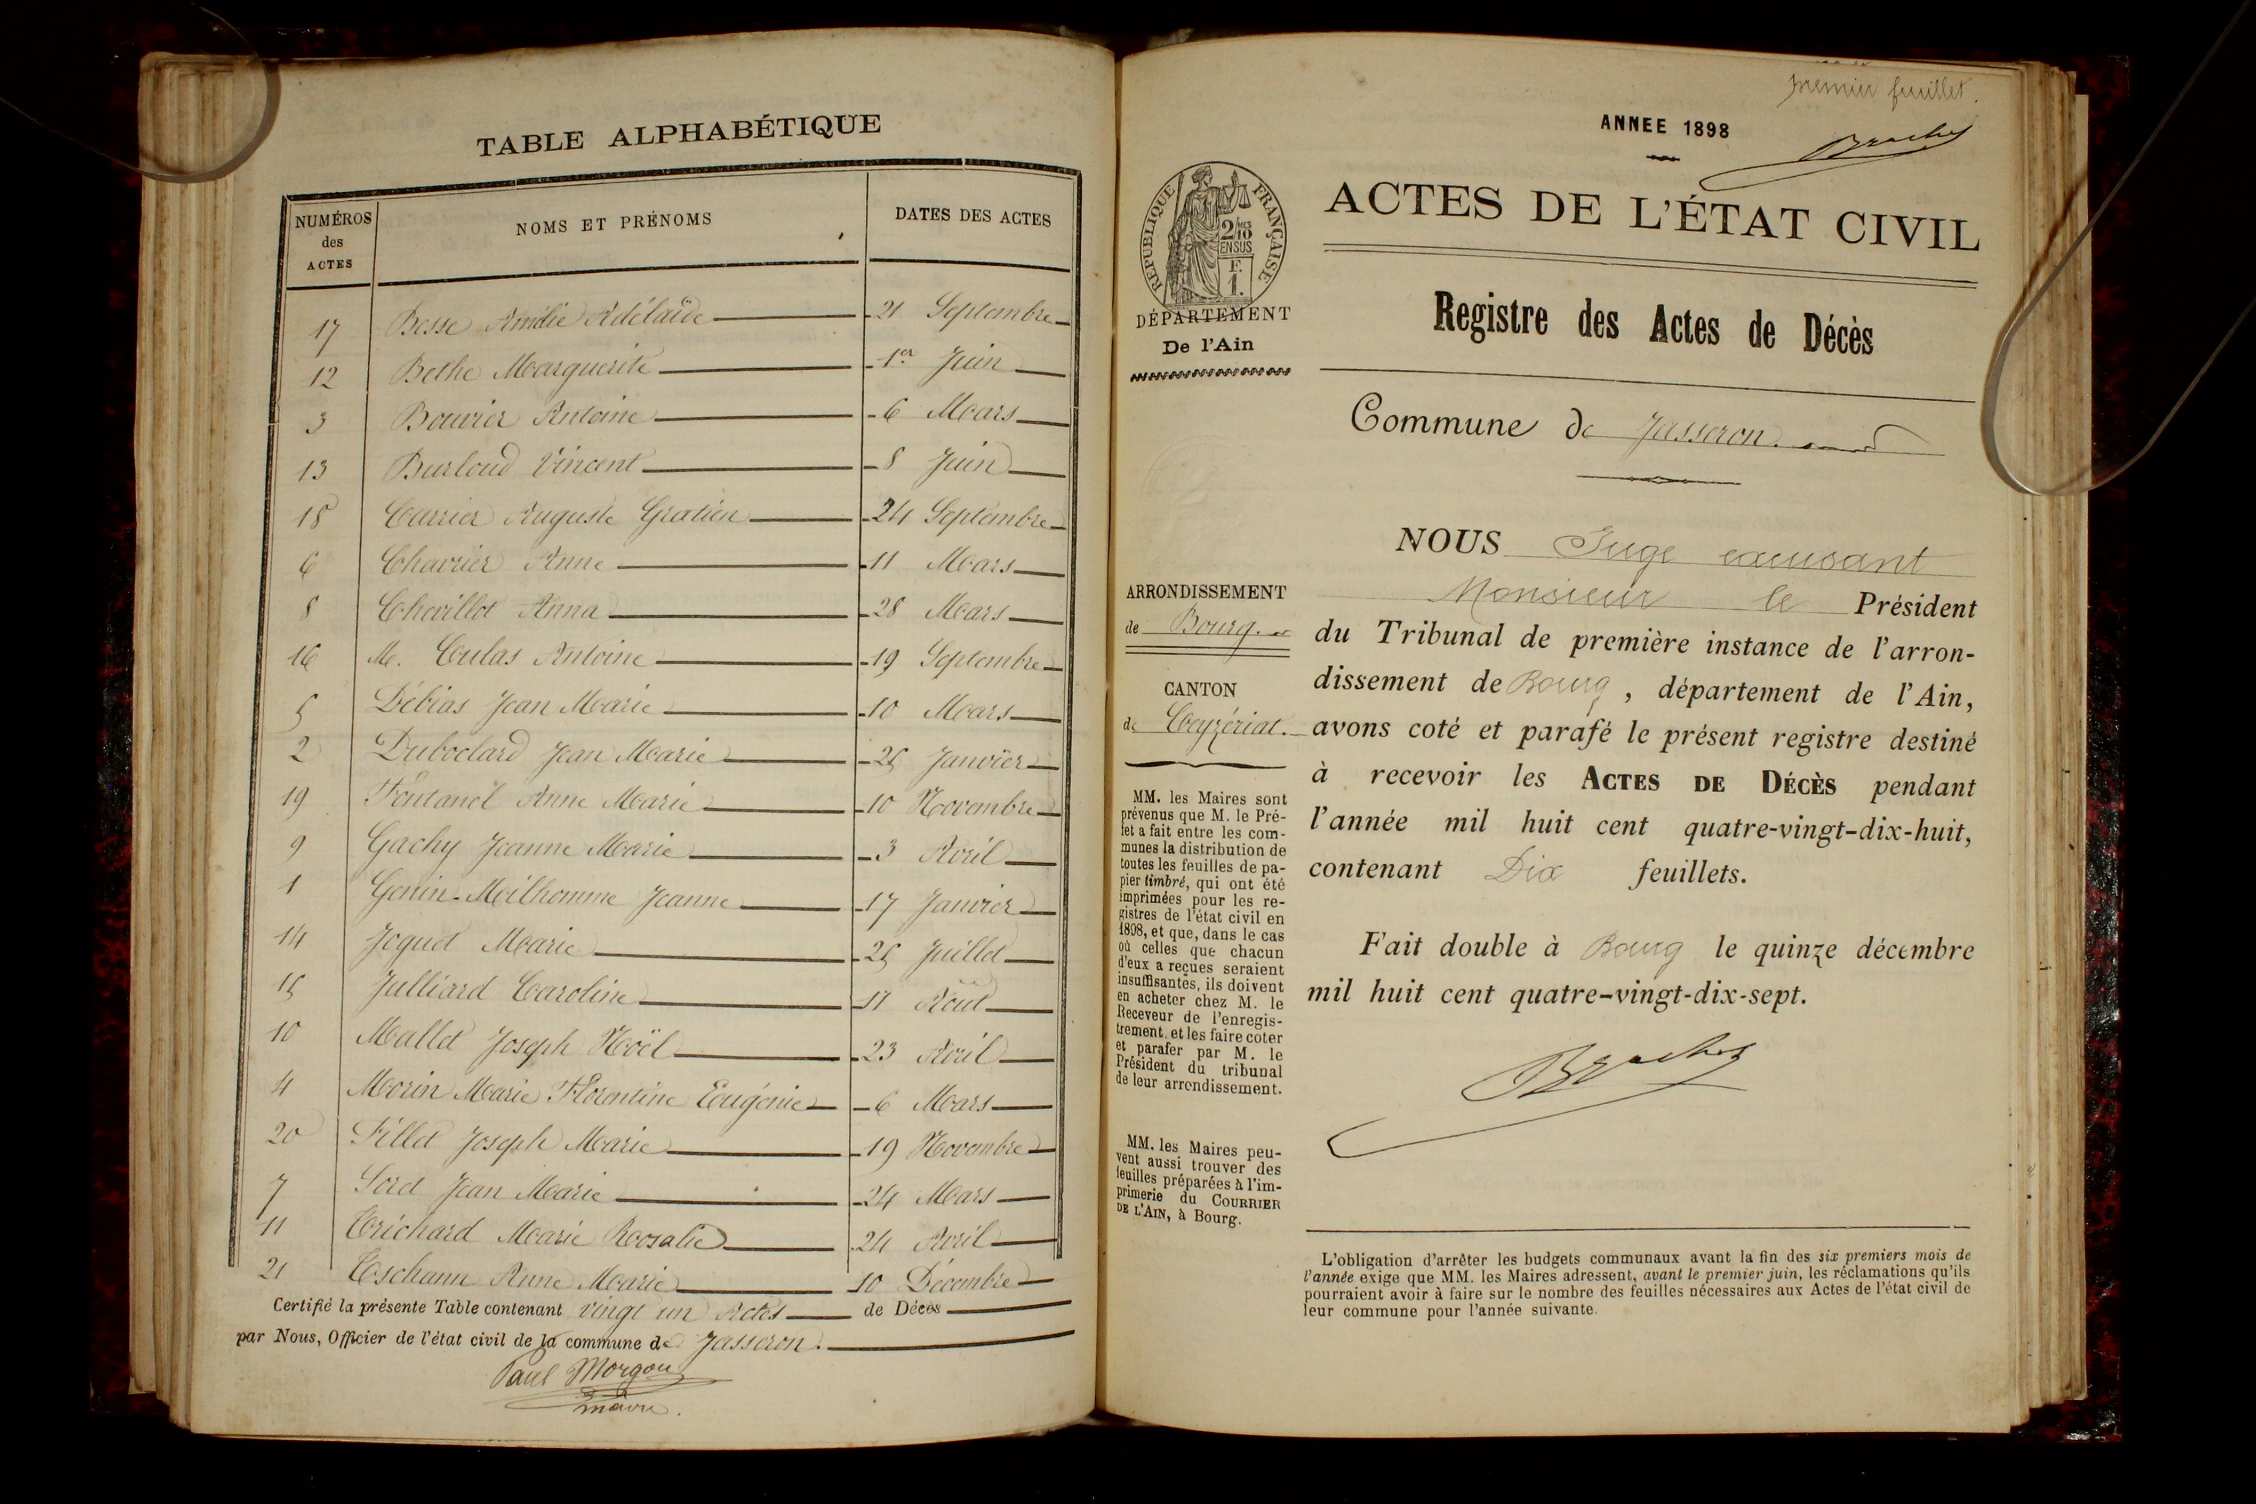 TABLE ALPHABÉTIQUE
NUMÉROS des ACTES NOMS ET PRÉNOMS DATES DES ACTES
17 Besse Amélie Adélaïde 21 Septembre
12 Bethe Marguerite 1er Juin
3 Bouvier Antoine 6 Mars
13 Burloud Vincent 8 Juin
18 Carrier Auguste Gratien 24 Septembre
6 Chavrier Anne 11 Mars
8 Chevillot Anna 28 Mars
16 M. Culas Antoine 19 Septembre
5 Débias Jean Marie 10 Mars
2 Duboclard Jean Marie 25 Janvier
19 Fontanel Anne Marie 10 Novembre
9 Gachy Jeanne Marie 3 Avril
1 Genin-Milhomme Jeanne 17 Janvier
14 Joguet Marie 25 Juillet
15 Julliard Caroline 11 Août
10 Mallet Joseph Noël 23 Avril
4 Morin Marie Florentine Eugénie 6 Mars
20 Pillet Joseph Marie 19 Novembre
7 Soret Jean Marie 24 Mars
11 Trichard Marie Rosalie 24 Avril
21 Tschann Anne Marie 10 Décembre
Certifié la présente Table contenant vingt un Actes de Décès
par Nous, Officier de l'état civil de la commune de Jasseron.
Paul Morgon
maire.
premier feuillet.
ANNEE 1898
ACTES DE L'ÉTAT CIVIL
REPUBLIQUE FRANÇAISE
2/10
EN SUS
F.
1.
DÉPARTEMENT
De l'Ain
Registre des Actes de Décès
Commune de Jasseron
ARRONDISSEMENT
de Bourg.
CANTON
de Ceyzériat.
MM. les Maires sont
prévenus que M. le Pré-
fet a fait entre les com-
munes la distribution de
toutes les feuilles de pa-
pier timbré, qui ont été
imprimées pour les re-
gistres de l'état civil en
1898, et que, dans le cas
où celles que chacun
d'eux a reçues seraient
insuffisantes, ils doivent
en acheter chez M. le
Receveur de l'enregis-
trement, et les faire coter
et parafer par M. le
Président du tribunal
de leur arrondissement.
MM. les Maires peu-
vent aussi trouver des
feuilles préparées à l'im-
primerie du COURRIER
DE L'AIN, à Bourg.
NOUS Juge excusant
Monsieur le Président
du Tribunal de première instance de l'arron-
dissement de Bourg, département de l'Ain,
avons coté et parafé le présent registre destiné
à recevoir les ACTES DE DÉCÈS pendant
l'année mil huit cent quatre-vingt-dix-huit,
contenant Dix feuillets.
Fait double à Bourg le quinze décembre
mil huit cent quatre-vingt-dix-sept.
L'obligation d'arrêter les budgets communaux avant la fin des six premiers mois de
l'année exige que MM. les Maires adressent, avant le premier juin, les réclamations qu'ils
pourraient avoir à faire sur le nombre des feuilles nécessaires aux Actes de l'état civil de
leur commune pour l'année suivante.